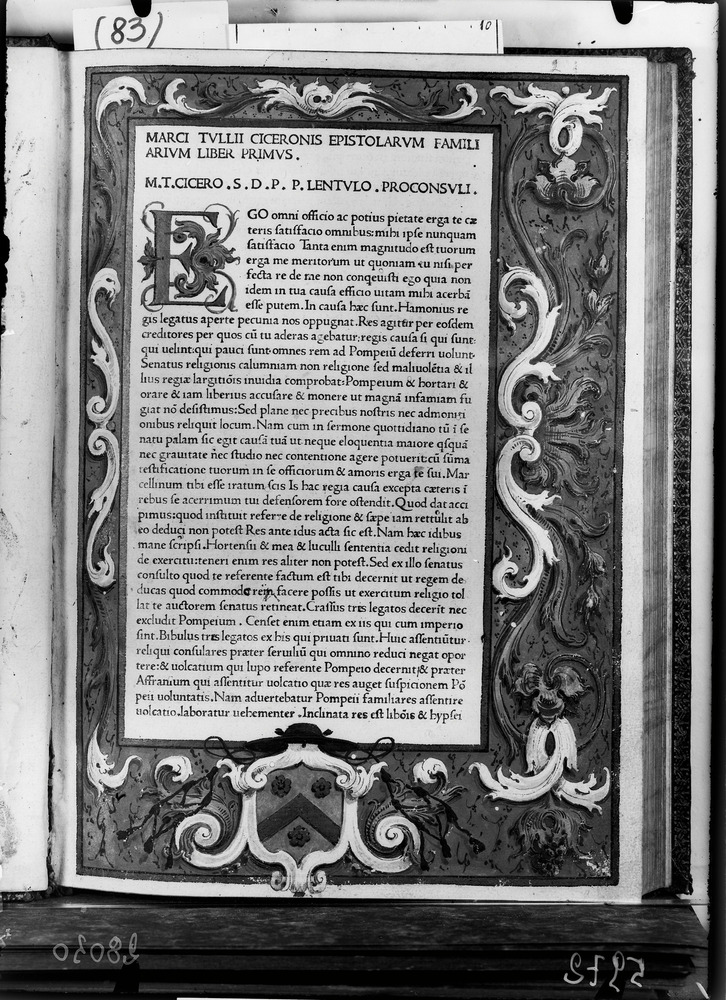 (83)
10
MARCI TVLLII CICERONIS EPISTOLARVM FAMILI
ARIVM LIBER PRIMVS.
M.T.CICERO.S.D.P. P.LENTVLO.PROCONSVLI.
EGO omni officio ac potius pietate erga te cæ
teris satisfacio omnibus: mihi ipse nunquam
satisfacio Tanta enim magnitudo est tuorum
erga me meritorum ut quoniam tu nisi per
fecta re de me non conquieuisti ego quia non
idem in tua causa efficio uitam mihi acerbã
esse putem. In causa hæc sunt. Hamonius re
gis legatus aperte pecunia nos oppugnat. Res agitur per eosdem
creditores per quos cũ tu aderas agebatur: regis causa si qui sunt
qui uelint: qui pauci sunt omnes rem ad Pompeiũ deferri uolunt.
Senatus religionis calumniam non religione sed maliuolẽtia & il
lius regiæ largitiõis inuidia comprobat: Pompeium & hortari &
orare & iam liberius accusare & monere ut magnã infamiam fu
giat nõ desistimus: Sed plane nec precibus nostris nec admoniti
onibus reliquit locum. Nam cum in sermone quottidiano tũ ĩ se
natu palam sic egit causã tuã ut neque eloquentia maiore qsquã
nec grauitate nec studio nec contentione agere potuerit: cũ sũma
testificatione tuorum in se officiorum & amoris erga te sui. Mar
cellinum tibi esse iratum scis Is hac regia causa excepta cæteris ĩ
rebus se acerrimum tui defensorem fore ostendit. Quod dat acci
pimus: quod instituit referre de religione & sæpe iam rettulit ab
eo deduci non potest Res ante idus acta sic est. Nam hæc idibus
mane scripsi. Hortensii & mea & luculli sententia cedit religioni
de exercitu: teneri enim res aliter non potest. Sed ex illo senatus
consulto quod te referente factum est tibi decernit ut regem de
ducas quod commode rem facere possis ut exercitum religio tol
lat te auctorem senatus retineat. Crassus tris legatos decerit nec
excludit Pompeium. Censet enim etiam ex iis qui cum imperio
sint. Bibulus tris legatos ex his qui priuati sunt. Huic assentiũtur
reliqui consulares præter seruiliũ qui omnino reduci negat opor
tere: & uolcatium qui lupo referente Pompeio decernit: & præter
Affranium qui assentitur uolcatio quæ res auget suspicionem Põ
peii uoluntatis. Nam aduertebatur Pompeii familiares assentire
uolcatio. laboratur uehementer. Inclinata res est libõis & hypsei
28030
5972